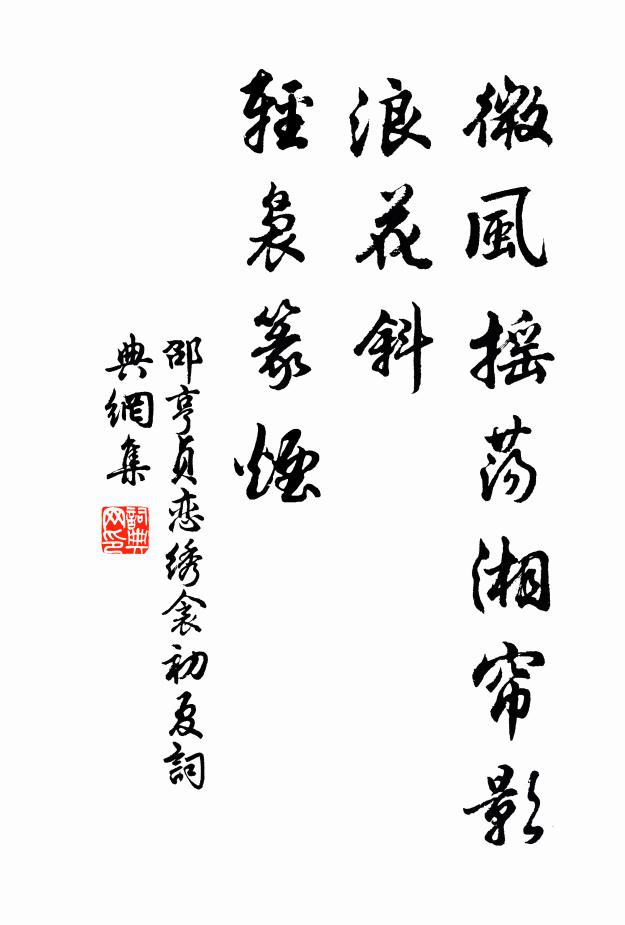 微風摇荡湘帘影
浪花斜
輕裊篆煙
邵亨貞恋绣衾初夏詞
典網集
詞典网印